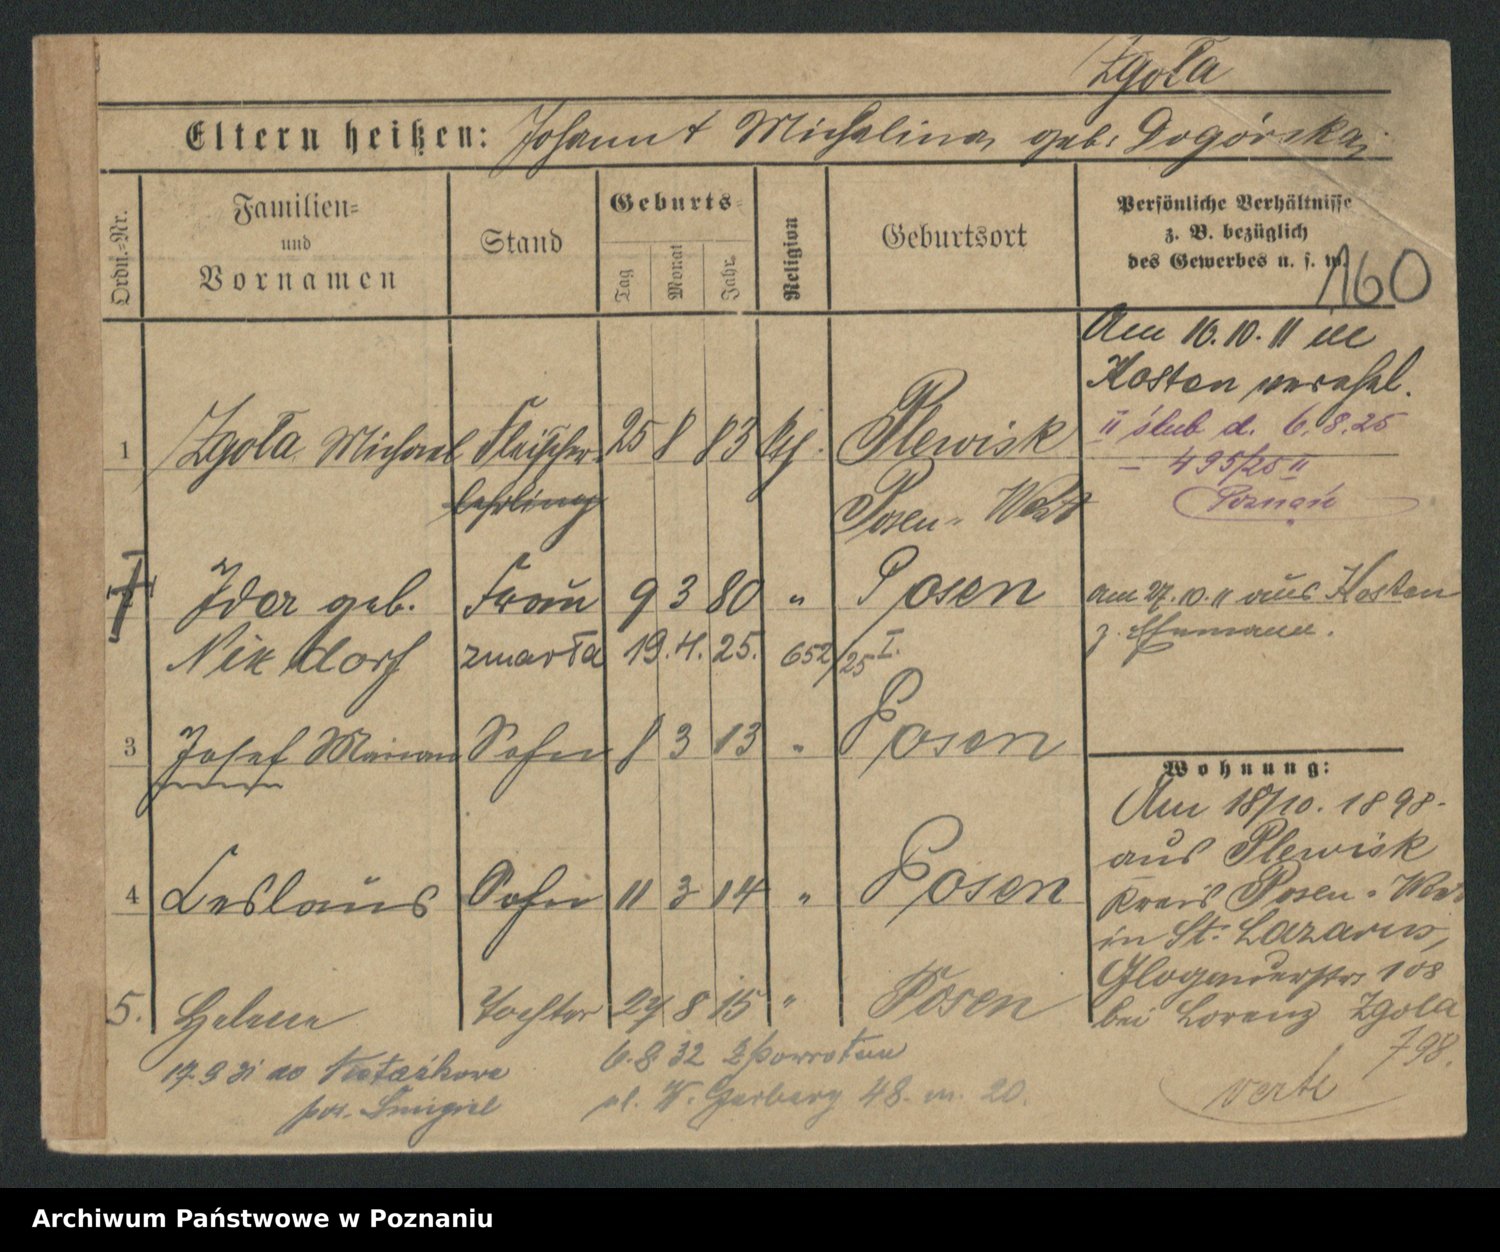 Zgoła
Eltern heißen: Johann & Michalina geb. Dogórska
Ordn.-Nr.
Familien-
und
Vornamen
Stand
Geburts-
Tag
Monat
Jahr.
Religion
Geburtsort
Persönliche Verhältnisse
z. B. bezüglich
des Gewerbes u. s. w.
160
Am 16.10.11 in
Kosten verehel.
II ślub d. 6.8.25
– 495/25 II
Poznań
1 Zgoła Michael Fleischer- 25 8 83 kth. Plewisk
lehrling Posen-West
Ida geb. Frau 9 3 80 " Posen am 27.10.11 aus Kosten
z. Ehemann.
Nixdorf zmarła 19.4.25. 652/25 I.
3 Josef Marian Sohn 8 3 13 " Posen
4 Leslaus Sohn 11 3 14 " Posen
5. Helene Tochter 24 8 15 " Posen
Wohnung:
Am 18/10. 1898.
aus Plewisk
Kreis Posen-West
in St. Lazarus,
Glogauerstr. 108
bei Lorenz Zgola
798.
verte
17.9.31 do
pow. Śmigiel
6.8.32 z powrotem
ul. W. Garbary 48. m. 20.
Archiwum Państwowe w Poznaniu